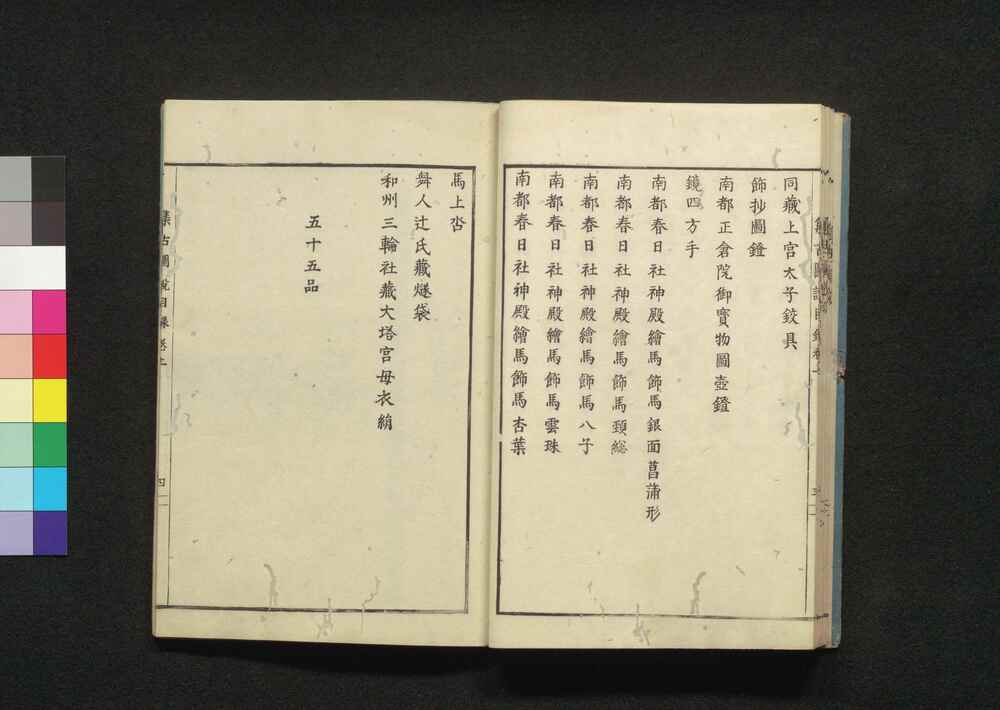 同蔵上宮太子鉸具
飾抄圖鐙
南都正倉院御寳物圖壺鐙
鏡四方手
南都春日社神殿繪馬飾馬銀面菖蒲形
南都春日社神殿繪馬飾馬頚総
南都春日社神殿繪馬飾馬八子
南都春日社神殿繪馬飾馬雲珠
南都春日社神殿繪馬飾馬杏葉
馬上沓
舞人辻氏蔵燧袋
和州三輪社蔵大塔宮母衣絹
五十五品
集古圖説目録巻上
四